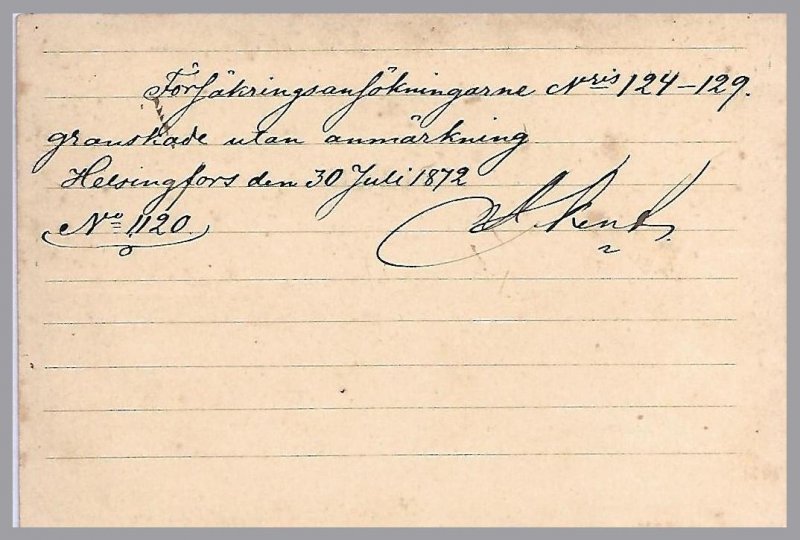 Försäkringsansökningarne Nris 124–129.
granskade utan anmärkning
Helsingfors den 30 Juli 1872
No 1120.